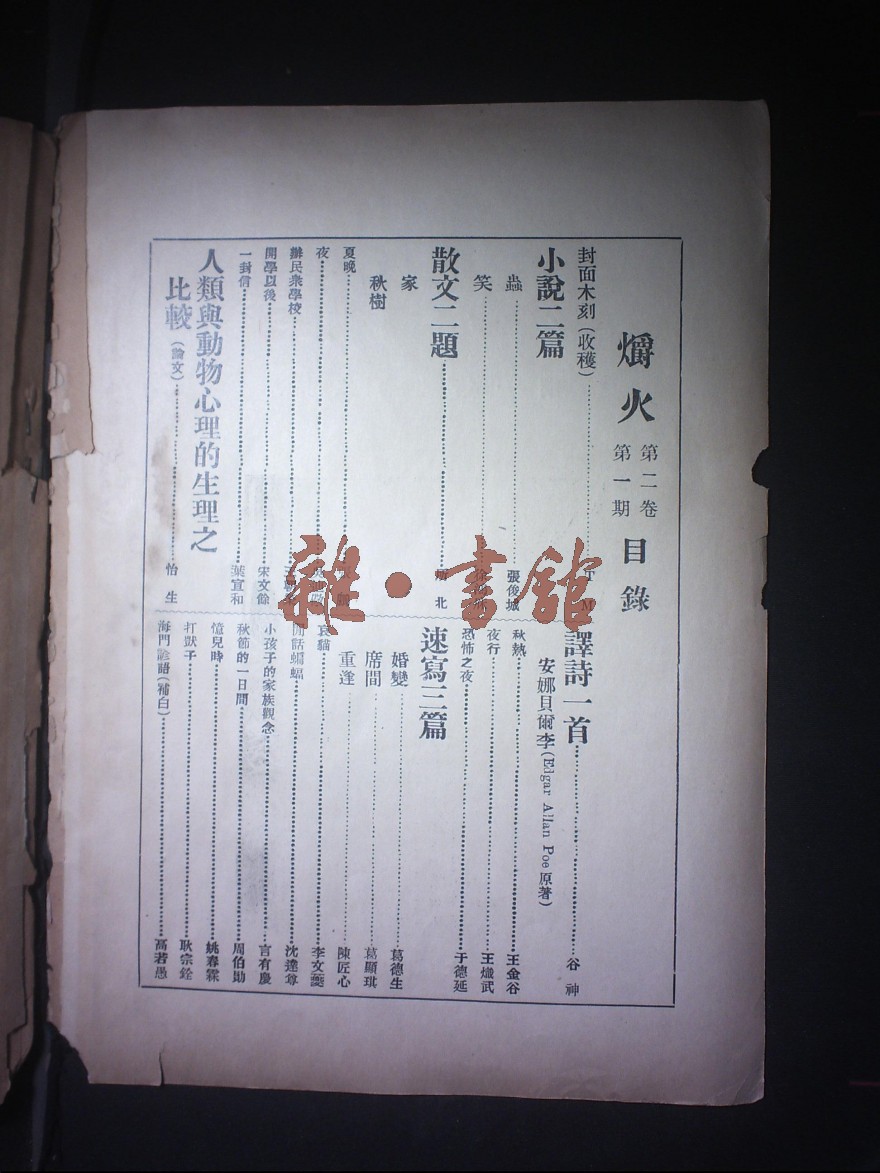 爝火 第二卷 第一期 目錄
封面木刻(收穫) T M
小說二篇
蟲 張俊城
笑
散文二題 北
家
秋樹
夏晚
夜
辦民衆學校
開學以後 宋文餘
一封信 葉宣和
人類與動物心理的生理之
比較(論文) 怡生
譯詩一首 谷神
安娜貝爾李(Edgar Allan Poe原著)
秋熱 王金谷
夜行 王熾武
恐怖之夜 于德延
速寫三篇
婚變 葛德生
席間 葛顯琪
重逢 陳匠心
哀貓 李文
閒話蝙蝠 沈達尊
小孩子的家族觀念 言有慶
秋節的一日間 周伯勛
憶兒時 姚春霖
打獃子 耿宗銓
海門諺語(補白) 高若愚
雜·書館